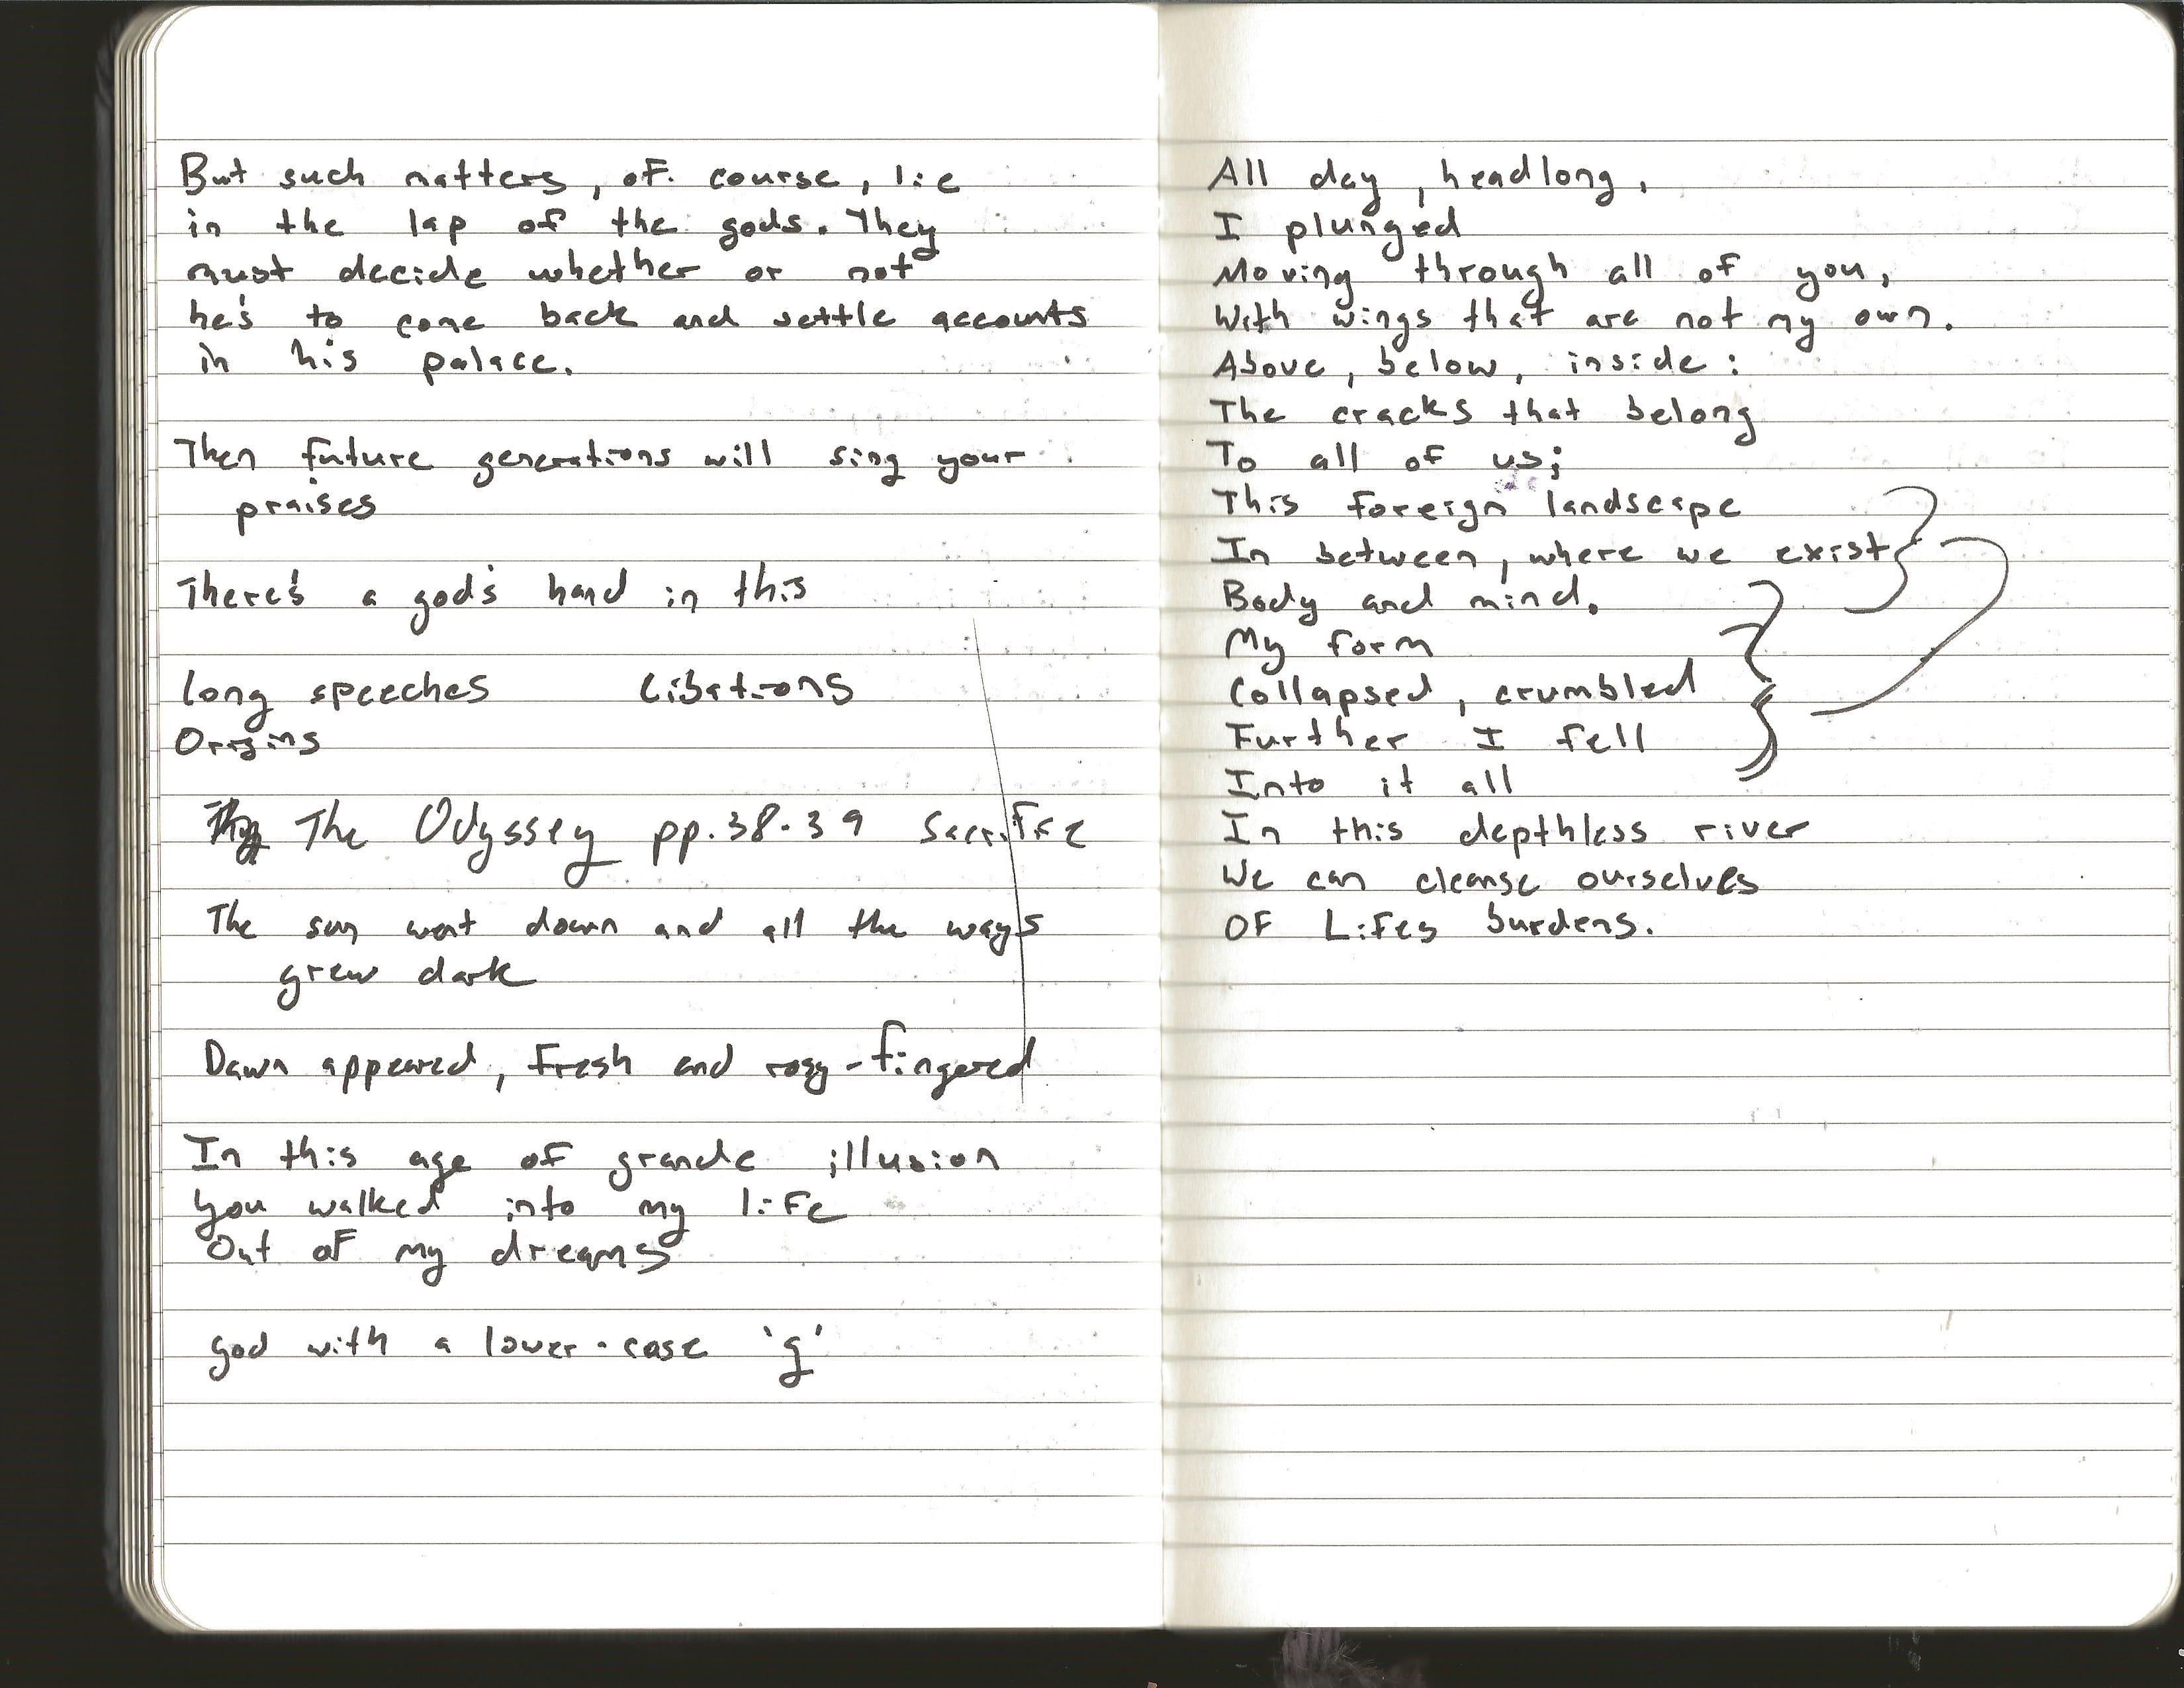 But such matters, of course, lie
in the lap of the gods. They
must decide whether or not
he's to come back and settle accounts
in his palace.
Then future generations will sing your
praises
There's a god's hand in this
Long speeches Libations
Origins
The Odyssey pp. 38-39 Sacrifice
The sun went down and all the ways
grew dark
Dawn appeared, fresh and rosy-fingered
In this age of grande illusion
You walked into my life
Out of my dreams
god with a lower-case 'g'
All day, headlong,
I plunged
Moving through all of you,
With wings that are not my own.
Above, below, inside:
The cracks that belong
To all of us;
This foreign landscape
In between, where we exist
Body and mind.
My form
Collapsed, crumbled
Further I fell
Into it all
In this depthless river
We can cleanse ourselves
Of Lifes burdens.